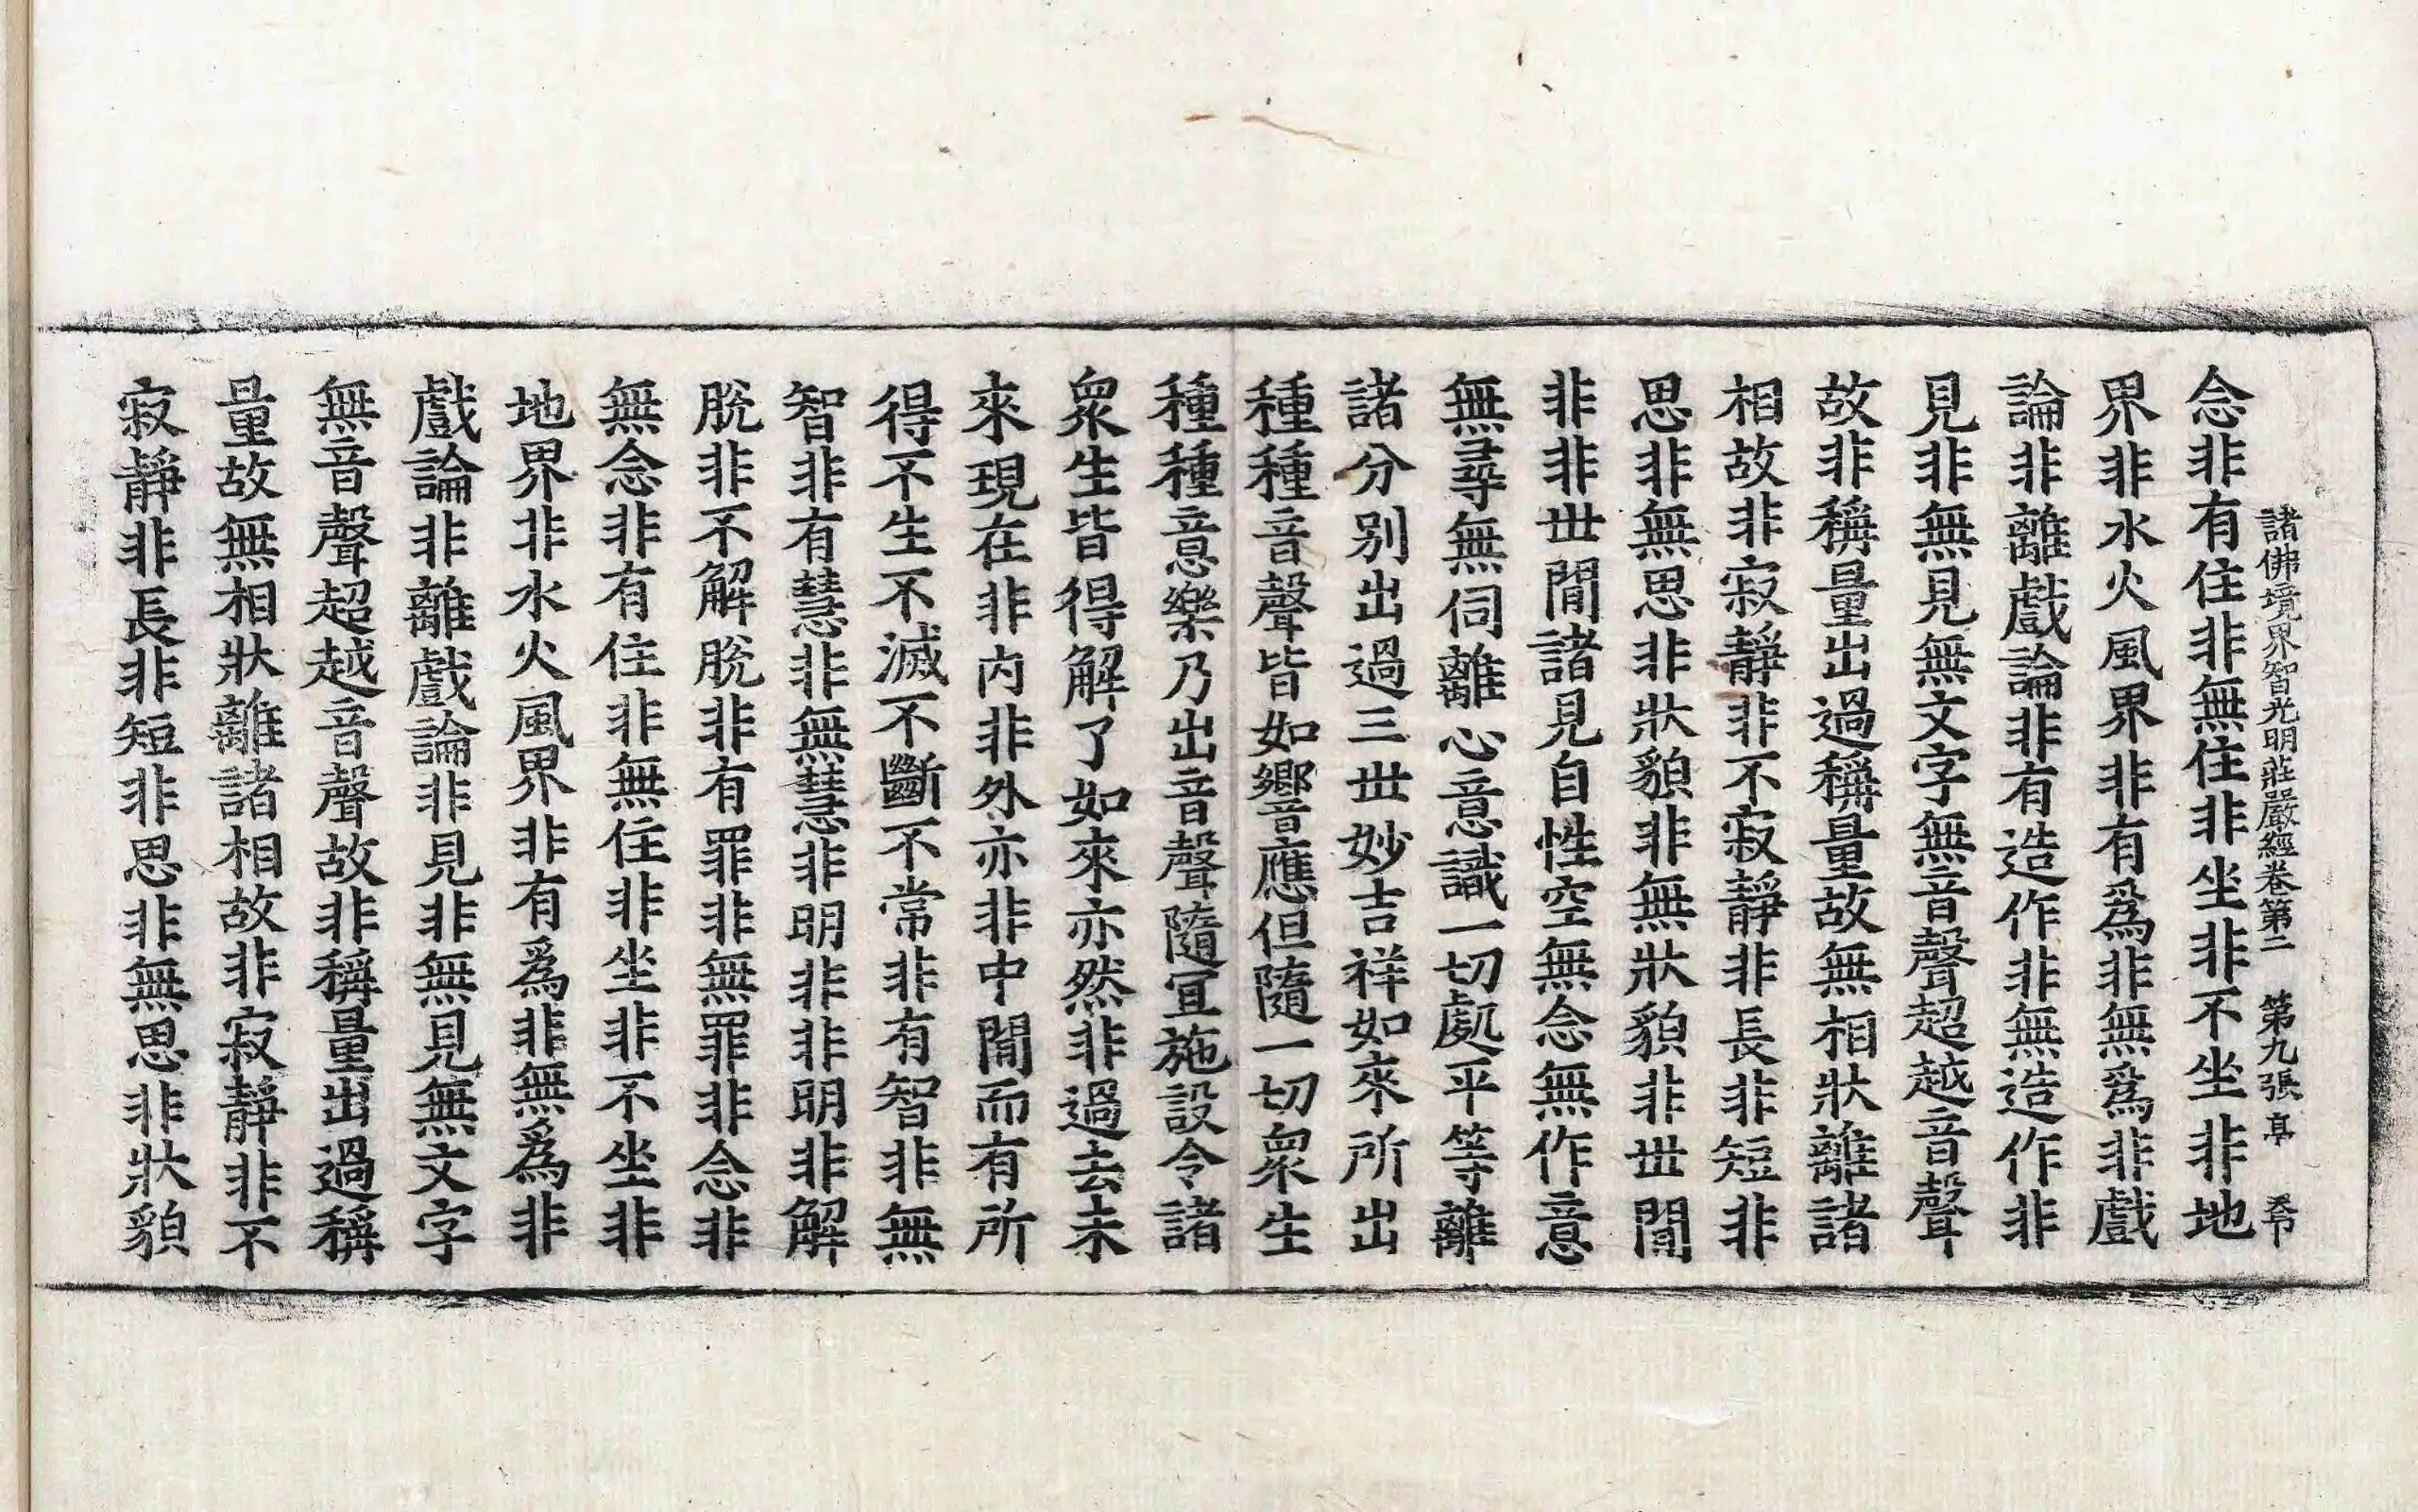 諸佛境界智光明莊嚴經卷第二　第九張　亭
念非有住非無住非坐非不坐非地
界非水火風界非有爲非無爲非戲
論非離戲論非有造作非無造作非
見非無見無文字無音聲超越音聲
故非稱量出過稱量故無相狀離諸
相故非寂靜非不寂靜非長非短非
思非無思非狀貌非無狀貌非世間
非非世間諸見自性空無念無作意
無尋無伺離心意識一切處平等離
諸分別出過三世妙吉祥如來所出
種種音聲皆如響應但隨一切衆生
種種意樂乃出音聲隨宜施設令諸
衆生皆得解了如來亦然非過去未
來現在非內非外亦非中間而有所
得不生不滅不斷不常非有智非無
智非有慧非無慧非明非非明非解
脫非不解脫非有罪非無罪非念非
無念非有住非無住非坐非不坐非
地界非水火風界非有爲非無爲非
戲論非離戲論非見非無見無文字
無音聲超越音聲故非稱量出過稱
量故無相狀離諸相故非寂靜非不
寂靜非長非短非思非無思非狀貌